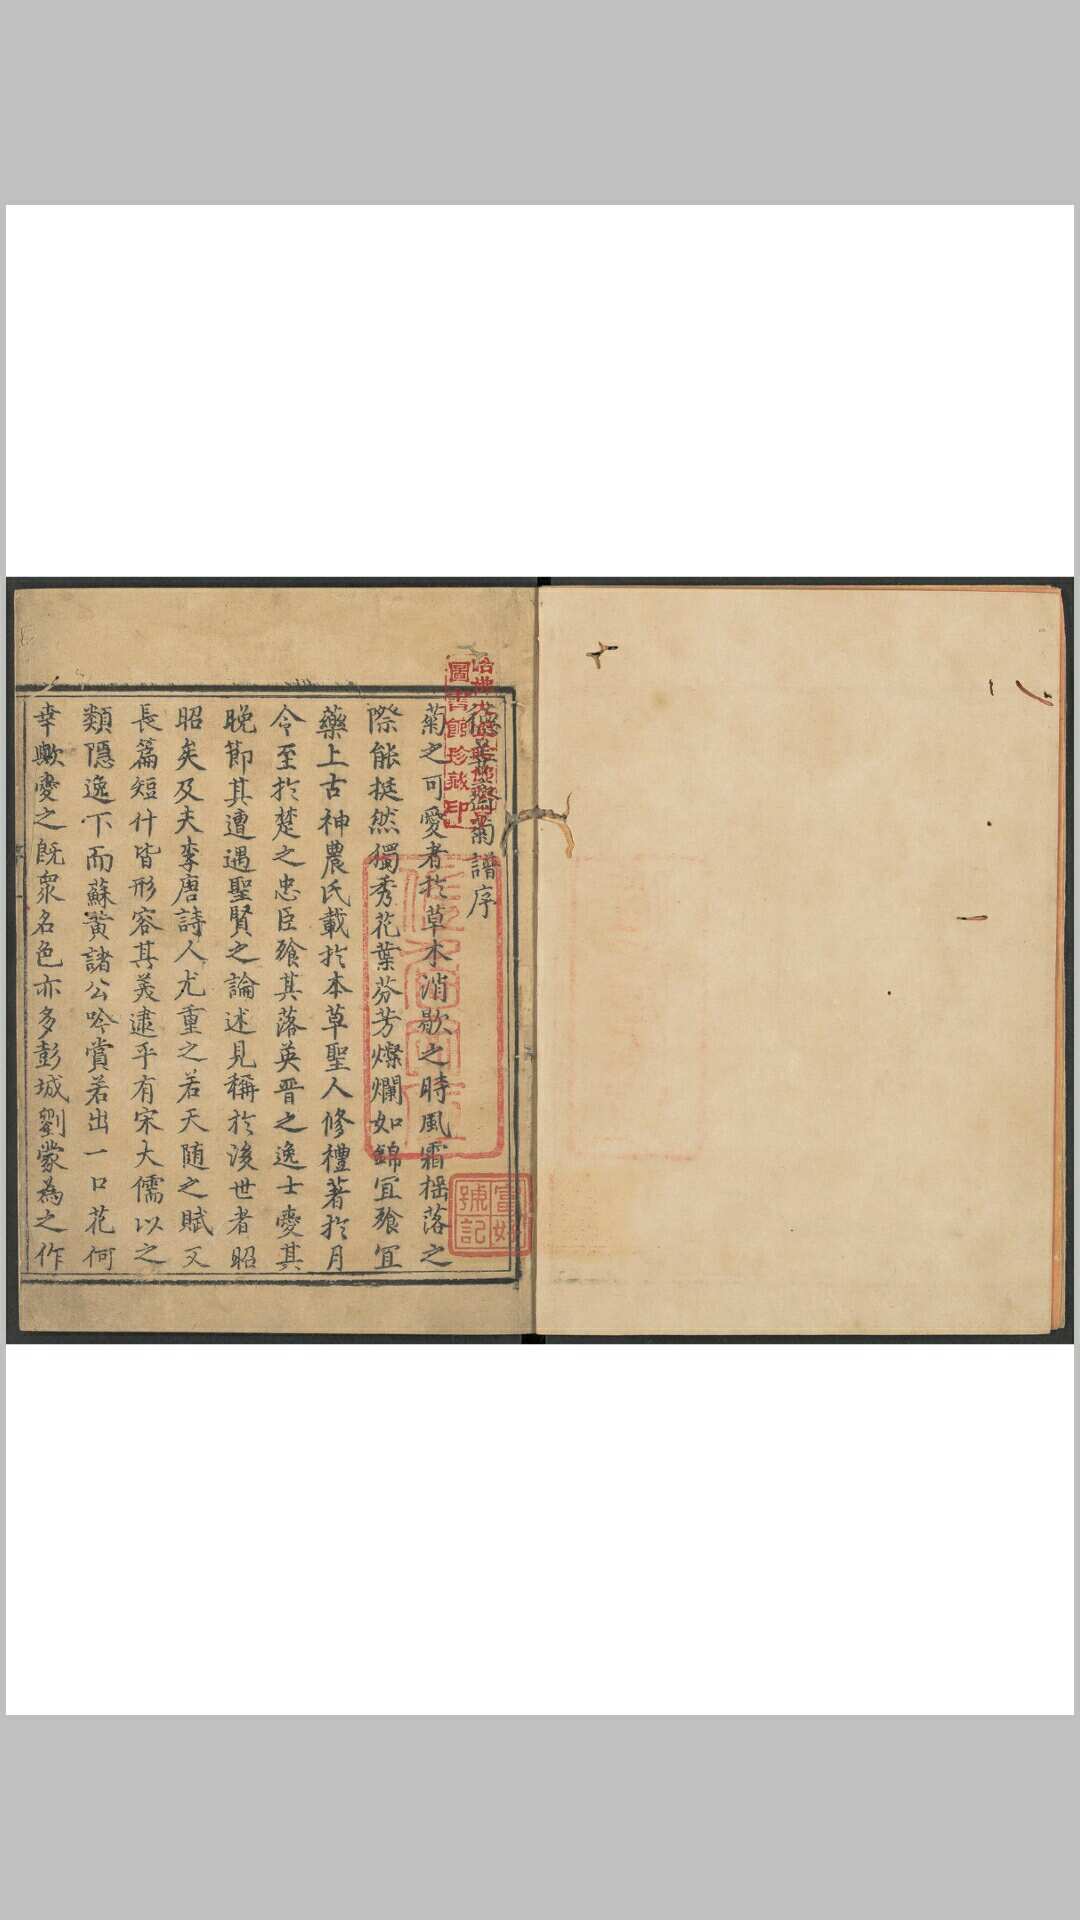 德善齋菊譜序
菊之可愛者扵草木消歇之時風霜揺落之
際能挺然獨秀花葉芬芳燦爛如錦宜飱宜
藥上古神農氏載扵本草聖人修禮著扵月
令至扵楚之忠臣飱其落英晋之逸士愛其
晚節其遭遇聖賢之論述見稱扵後世者昭
昭矣及夫李唐詩人尤重之若天随之賦又
長篇短什皆形容其美逮乎有宋大儒以之
類隱逸下而蘇黄諸公吟賞若出一口花何
幸歟愛之既衆名色亦多彭城劉蒙為之作
哈佛大學
圖書館珍藏印
號記